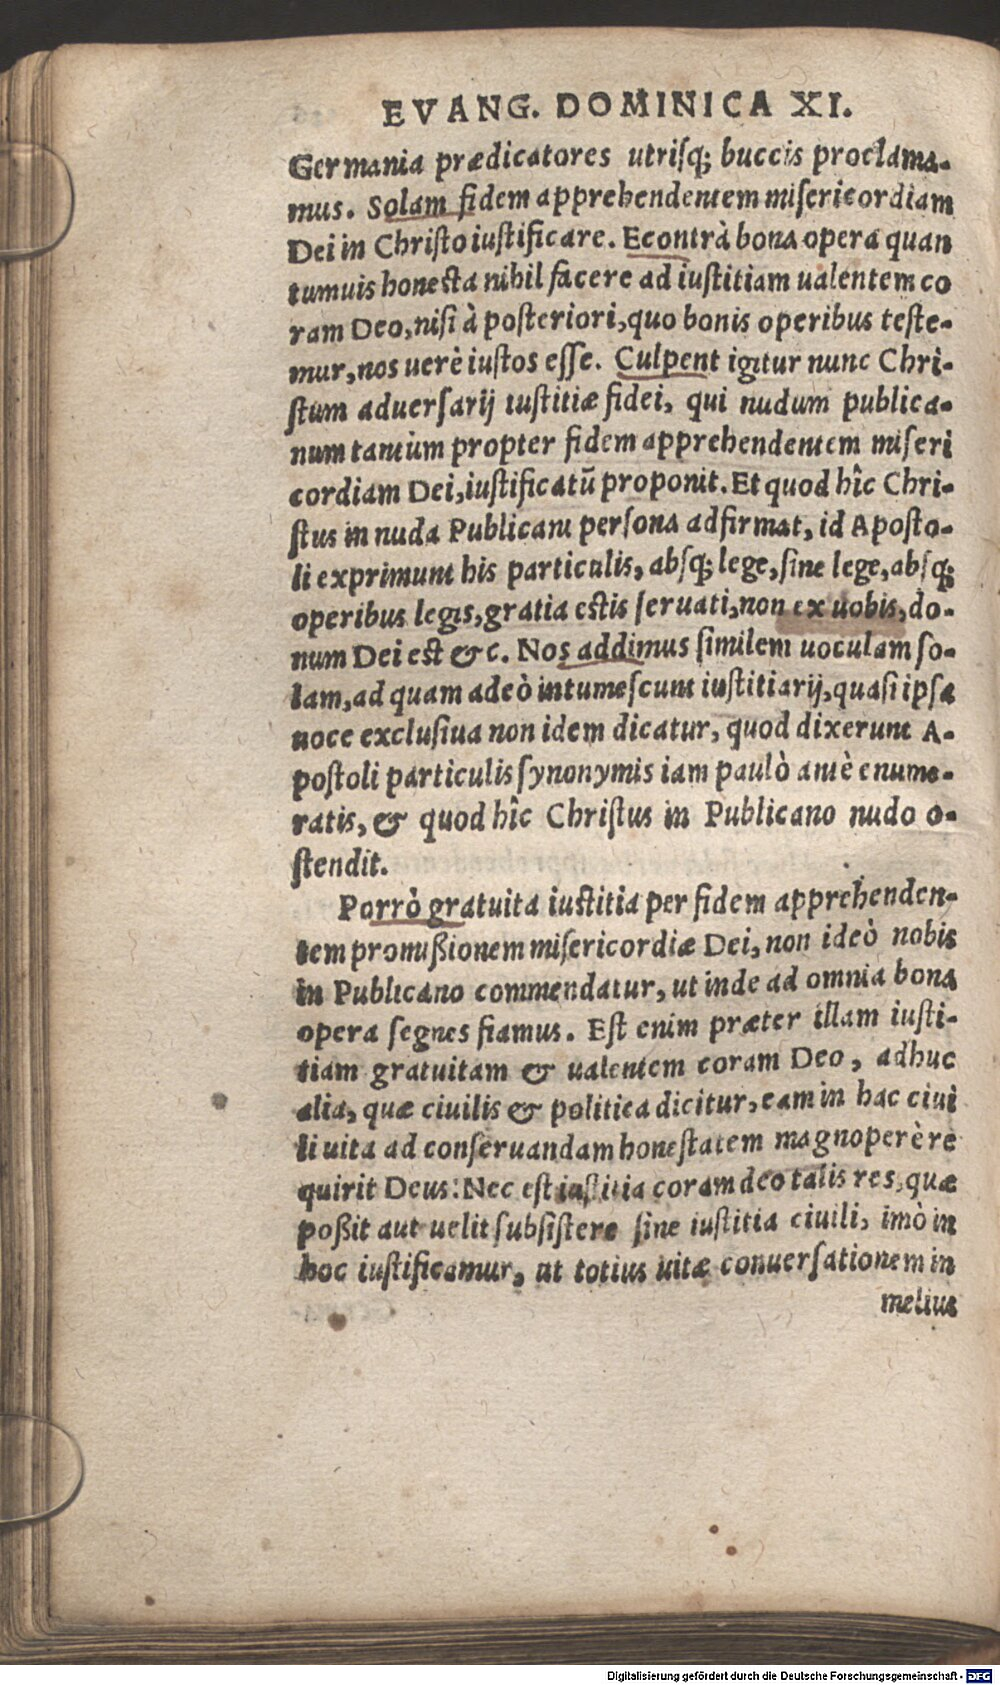 EVANG. DOMINICA XI.
Germania prædicatores utrisq; buccis proclama-
mus. Solam fidem apprehendentem misericordiam
Dei in Christo iustificare. Econtrà bona opera quan
tumuis honesta nihil facere ad iustitiam ualentem co
ram Deo, nisi à posteriori, quo bonis operibus teste-
mur, nos uerè iustos esse. Culpent igitur nunc Chri-
stum aduersarij iustitiæ fidei, qui nudum publica-
num tantùm propter fidem apprehendentem miseri
cordiam Dei, iustificatū proponit. Et quod hîc Chri-
stus in nuda Publicani persona adfirmat, id Aposto-
li exprimunt his particulis, absq; lege, sine lege, absq;
operibus legis, gratia estis seruati, non ex uobis, do-
num Dei est &c. Nos addimus similem uoculam so-
lam, ad quam adeò intumescunt iustitiarij, quasi ipsa
uoce exclusiua non idem dicatur, quod dixerunt A-
postoli particulis synonymis iam paulò antè enume-
ratis, & quod hîc Christus in Publicano nudo o-
stendit.
Porrò gratuita iustitia per fidem apprehenden-
tem promißionem misericordiæ Dei, non ideò nobis
in Publicano commendatur, ut inde ad omnia bona
opera segnes fiamus. Est enim præter illam iusti-
tiam gratuitam & ualentem coram Deo, adhuc
alia, quæ ciuilis & politica dicitur, eam in hac ciui
li uita ad conseruandam honestatem magnoperè re
quirit Deus: Nec est iustitia coram deo talis res, quæ
poßit aut uelit subsistere sine iustitia ciuili, imò in
hoc iustificamur, ut totius uitæ conuersationem in
melius
Digitalisierung gefördert durch die Deutsche Forschungsgemeinschaft - DFG